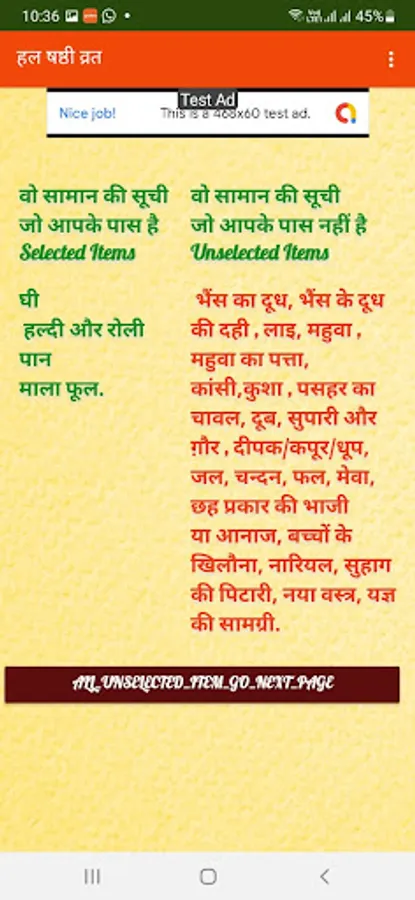 10:36 45%
हल षष्ठी व्रत
Test Ad
Nice job! This is a 468x60 test ad.
वो सामान की सूची
जो आपके पास है
Selected Items
वो सामान की सूची
जो आपके पास नहीं है
Unselected Items
घी
हल्दी और रोली
पान
माला फूल.
भैंस का दूध, भैंस के दूध
की दही , लाइ, महुवा ,
महुवा का पत्ता,
कांसी,कुशा , पसहर का
चावल, दूब, सुपारी और
ग़ौर , दीपक/कपूर/धूप,
जल, चन्दन, फल, मेवा,
छह प्रकार की भाजी
या आनाज, बच्चों के
खिलौना, नारियल, सुहाग
की पिटारी, नया वस्त्र, यज्ञ
की सामग्री.
ALL_UNSELECTED_ITEM_GO_NEXT_PAGE